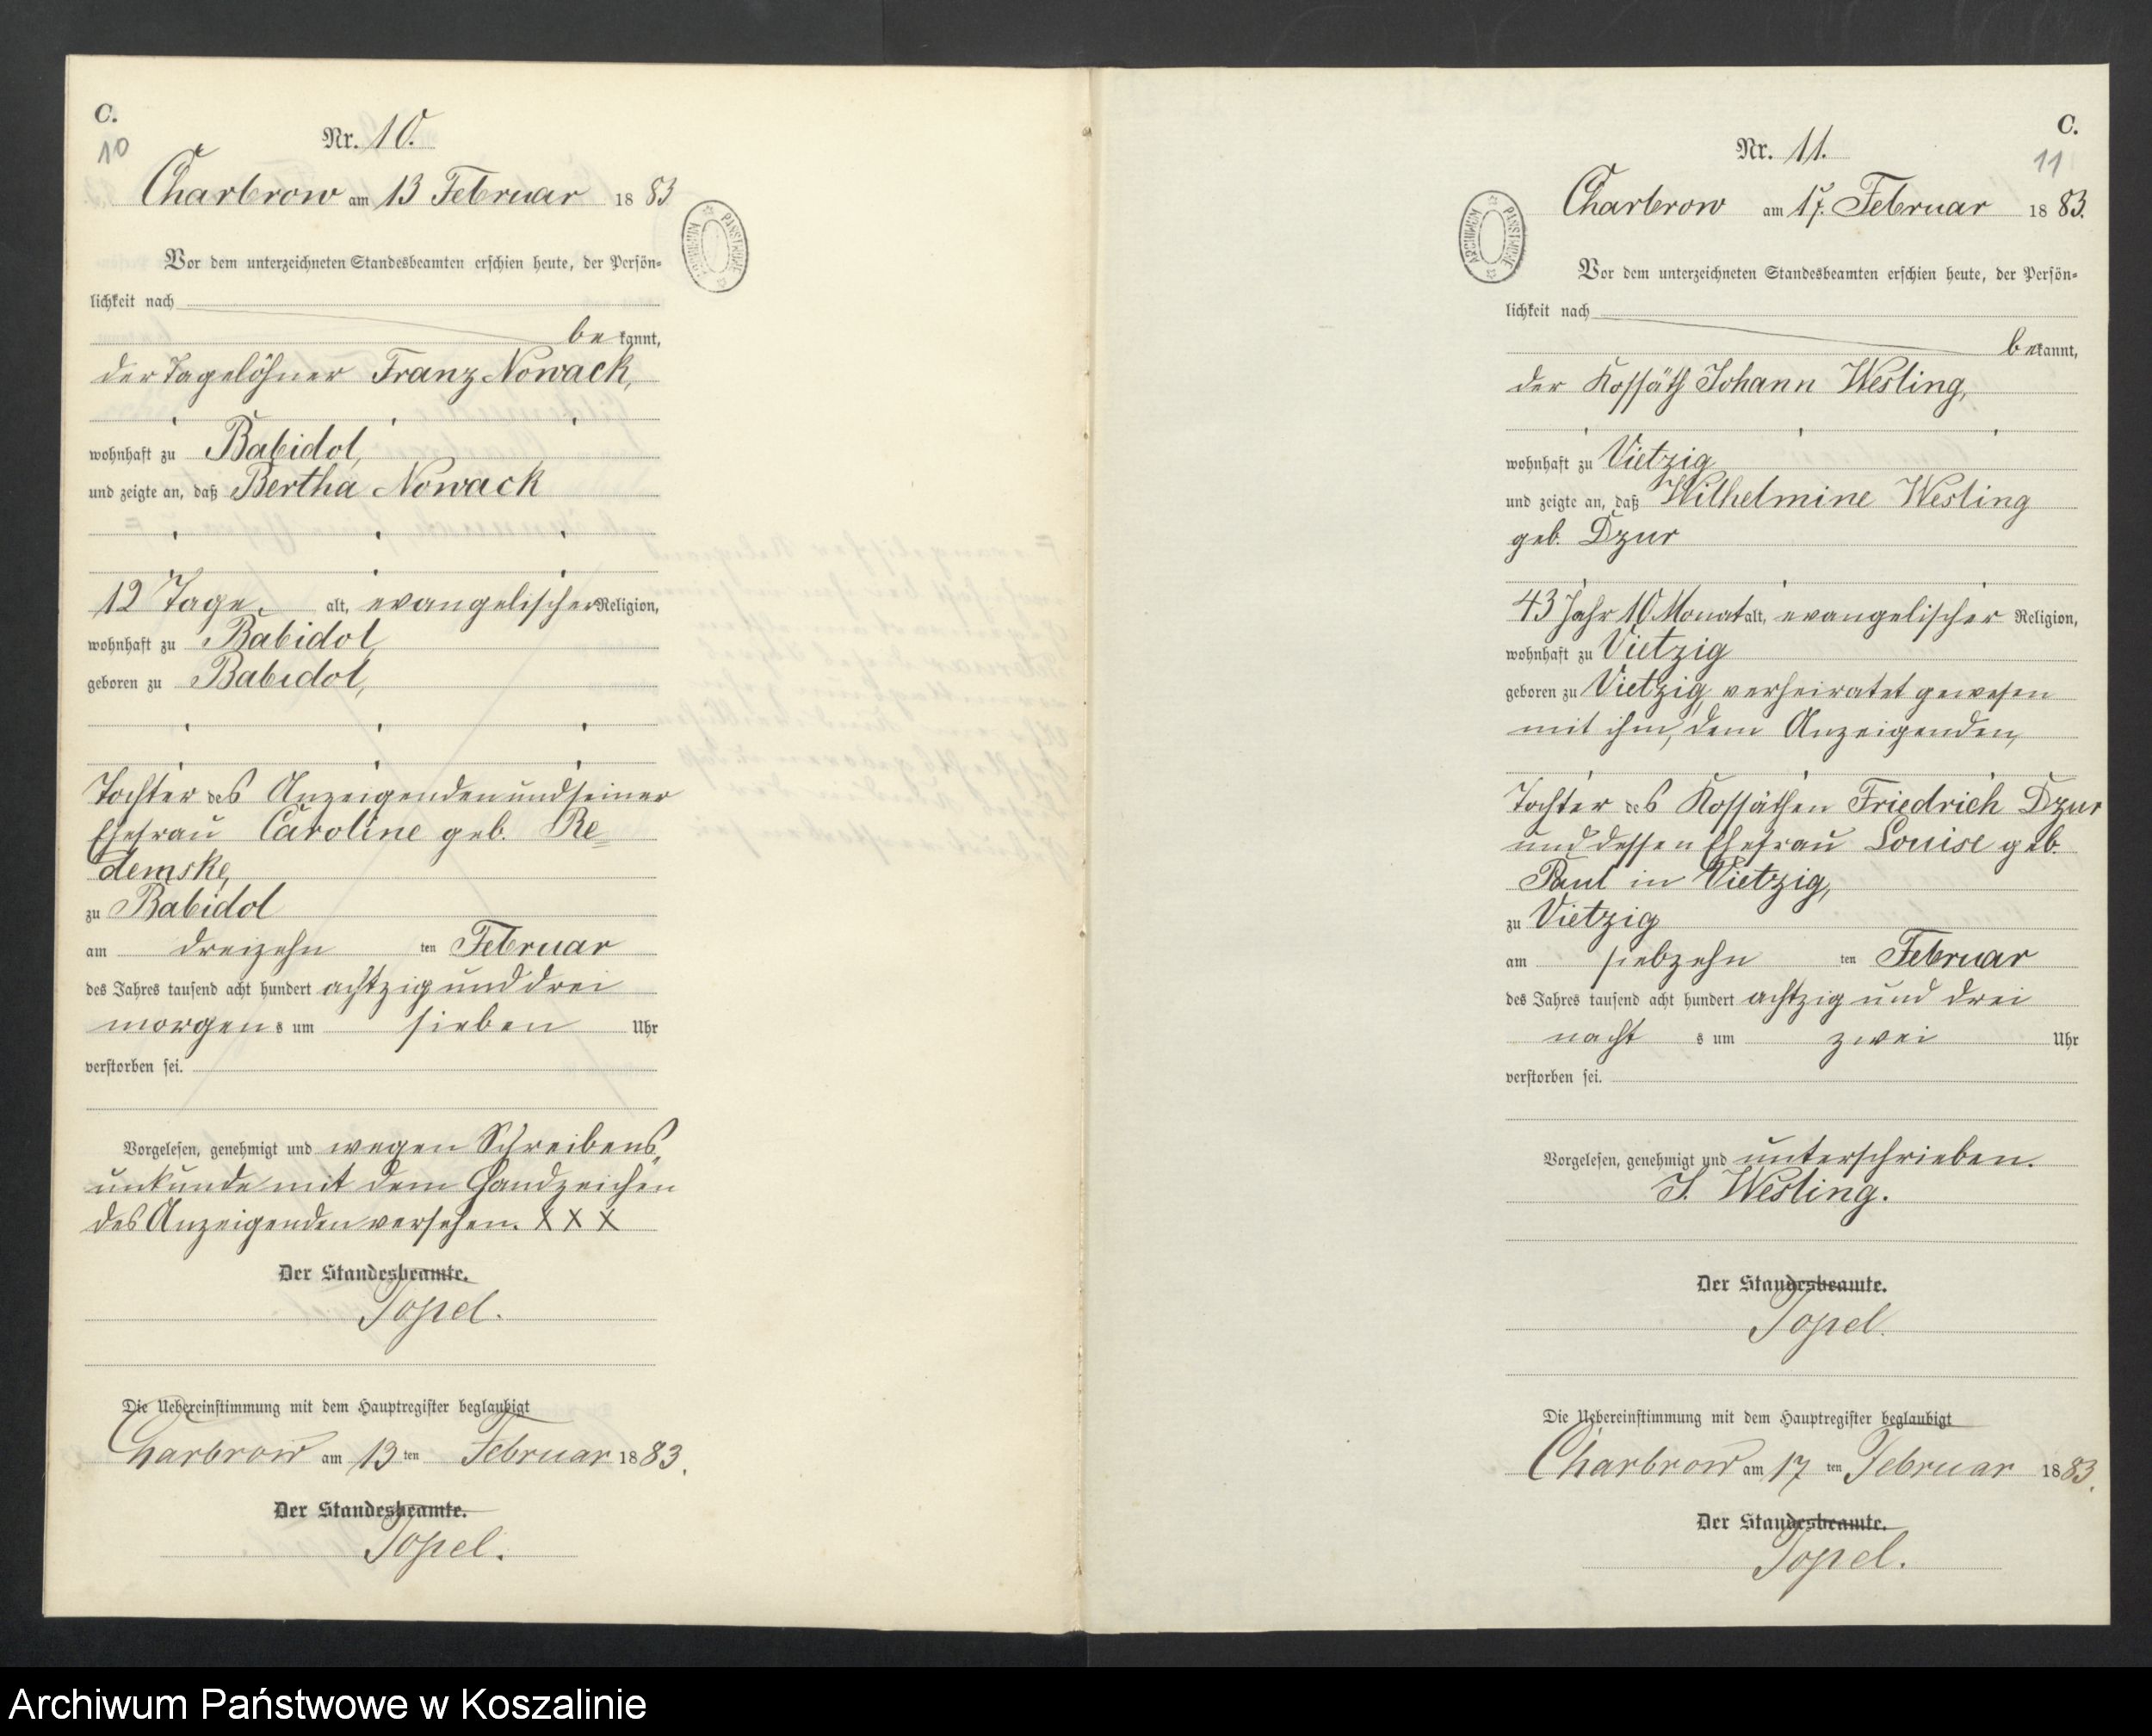 C.
10
Nr. 10.
Charbrow am 13 Februar 1883
Vor dem unterzeichneten Standesbeamten erschien heute, der Persön-
lichkeit nach
bekannt,
der Tagelöhner Franz Nowack,
wohnhaft zu Babidol,
und zeigte an, daß Bertha Nowack
12 Tage, alt, evangelischer Religion,
wohnhaft zu Babidol,
geboren zu Babidol,
Tochter des Anzeigenden und seiner
Ehefrau Caroline geb. Re=
demske,
zu Babidol
am dreizehn ten Februar
des Jahres tausend acht hundert achtzig und drei
morgens um sieben Uhr
verstorben sei.
Vorgelesen, genehmigt und wegen Schreibens-
unkunde mit dem Handzeichen
des Anzeigenden versehen. X X X
Der Standesbeamte.
Topel.
Die Uebereinstimmung mit dem Hauptregister beglaubigt
Charbrow am 13 ten Februar 1883.
Der Standesbeamte.
Topel.
ARCHIWUM PAŃSTWOWE
C.
11
Nr. 11.
Charbrow am 17. Februar 1883.
Vor dem unterzeichneten Standesbeamten erschien heute, der Persön-
lichkeit nach
bekannt,
der Kossäth Johann Wesling,
wohnhaft zu Vietzig
und zeigte an, daß Wilhelmine Wesling
geb. Dzur
43 Jahr 10 Monat alt, evangelischer Religion,
wohnhaft zu Vietzig
geboren zu Vietzig, verheiratet gewesen
mit ihm, dem Anzeigenden,
Tochter des Kossäthen Friedrich Dzur
und dessen Ehefrau Louise geb.
Paul in Vietzig,
zu Vietzig
am siebzehn ten Februar
des Jahres tausend acht hundert achtzig und drei
nachts um zwei Uhr
verstorben sei.
Vorgelesen, genehmigt und unterschrieben.
J. Wesling.
Der Standesbeamte.
Topel.
Die Uebereinstimmung mit dem Hauptregister beglaubigt
Charbrow am 17 ten Februar 1883.
Der Standesbeamte.
Topel.
ARCHIWUM PAŃSTWOWE
Archiwum Państwowe w Koszalinie